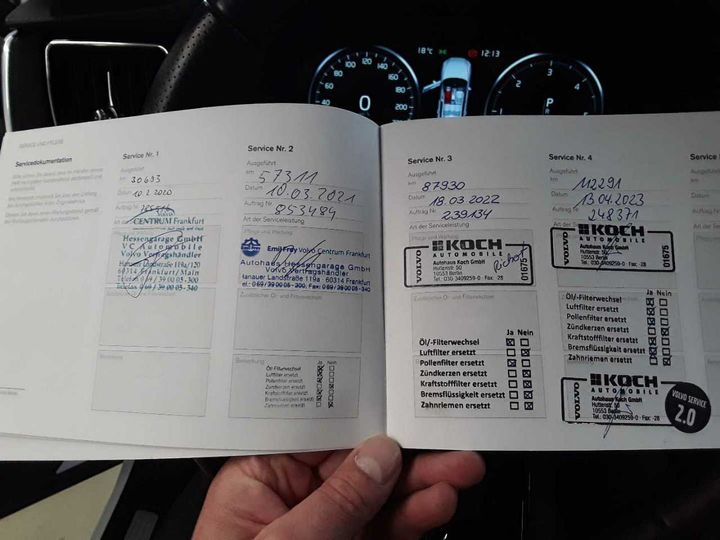 18°C
12:13
0
SERVICE UND PFLEGE
Servicedokumentation
Service Nr. 1
Ausgeführt
km 30693
Datum 10.2.2020
Auftrag Nr.
Art der Serviceleistung
VOLVO
CENTRUM Frankfurt
Hessengarage GmbH
VC Automobile
Volvo Vertragshändler
Hanauer Landstraße 119a/120
60314 Frankfurt/Main
Telefon 069/39 00 05-300
Telefax 069/39 00 05-340
Service Nr. 2
Ausgeführt
km 57311
Datum 10.03.2021
Auftrag Nr. 253484
Art der Serviceleistung
Pflege und Wartung
Emil Frey Volvo Centrum Frankfurt
Autohaus Hessengarage GmbH
Volvo Vertragshändler
Hanauer Landstraße 119a · 60314 Frankfurt
Tel.: 069/39 00 05-300, Fax: 069/39 00 05-340
Zusätzlicher Öl- und Filterwechsel
Bemerkung
Ja Nein
Öl-Filterwechsel
Luftfilter ersetzt
Pollenfilter ersetzt
Zündkerzen ersetzt
Kraftstofffilter ersetzt
Bremsflüssigkeit ersetzt
Zahnriemen ersetzt
Service Nr. 3
Ausgeführt
km 87930
Datum 18.03.2022
Auftrag Nr. 239134
Art der Serviceleistung
Pflege und Wartung
VOLVO
KOCH
AUTOMOBILE
Autohaus Koch GmbH
Huttenstr. 50
10553 Berlin
Tel.: 030-3409259-0 · Fax -28
01675
Zusätzlicher Öl- und Filterwechsel
Ja Nein
Öl/-Filterwechsel
Luftfilter ersetzt
Pollenfilter ersetzt
Zündkerzen ersetzt
Kraftstofffilter ersetzt
Bremsflüssigkeit ersetzt
Zahnriemen ersetzt
Service Nr. 4
Ausgeführt
km 112291
Datum 13.04.2023
Auftrag Nr. 248371
Art der Serviceleistung
VOLVO
KOCH
AUTOMOBILE
Autohaus Koch GmbH
Huttenstr. 50
10553 Berlin
Tel.: 030-3409259-0 · Fax -28
01675
Ja Nein
Öl/-Filterwechsel
Luftfilter ersetzt
Pollenfilter ersetzt
Zündkerzen ersetzt
Kraftstofffilter ersetzt
Bremsflüssigkeit ersetzt
Zahnriemen ersetzt
VOLVO
KOCH
AUTOMOBILE
Autohaus Koch GmbH
Huttenstr. 50
10553 Berlin
Tel.: 030-3409259-0 · Fax -28
VOLVO SERVICE
2.0